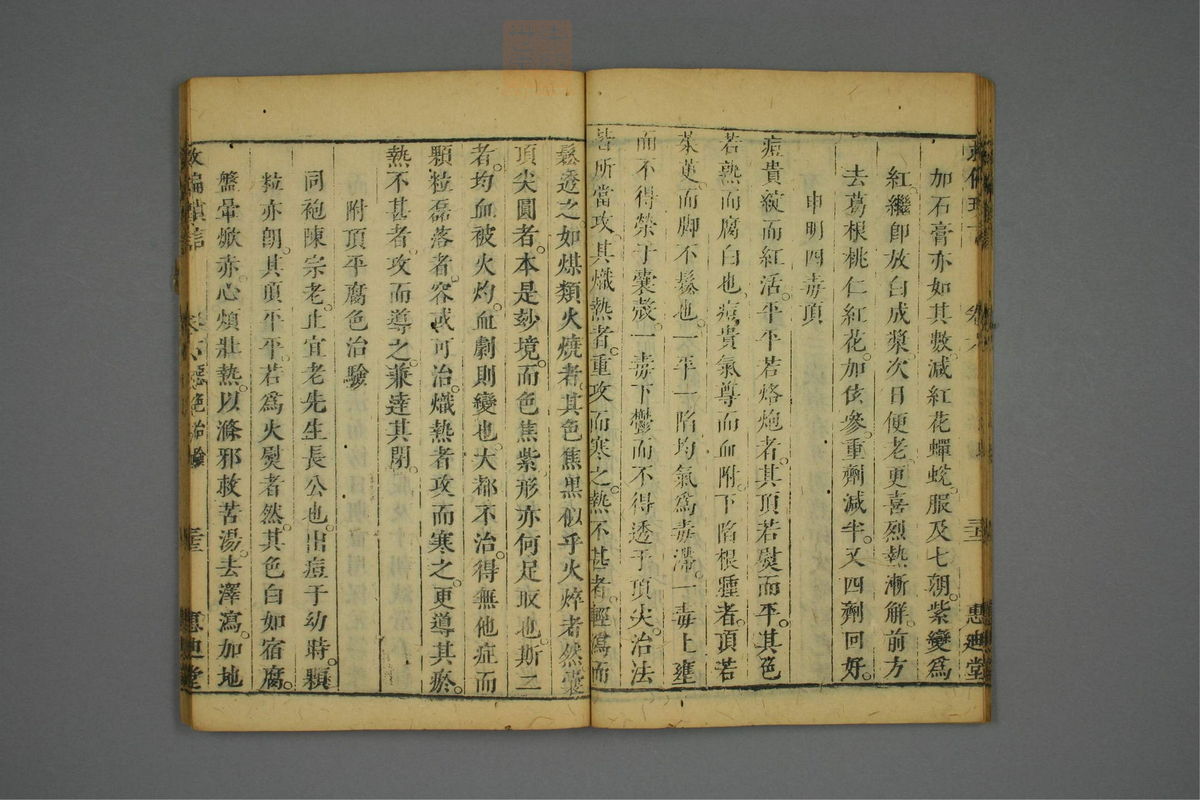 加石膏亦如其數減紅花蟬蛻服及七朝紫變爲
紅繼卽放白成漿次日便老更喜烈熱漸解前方
去葛根桃仁紅花加伭參重劑減半又四劑回好
申明四毒頂
痘貴綻而紅活平平若烙炮者其頂若熨而平其色
若熟而腐白也痘貴氣尊而血附下陷根腫者頂若
茱萸而脚不鬆也一平一陷均氣爲毒滯一毒上壅
而不得榮于囊殼一毒下鬱而不得透于頂尖治法
若所當攻其熾熱者重攻而寒之熱不甚者輕爲而
鬆透之如煤類火燒者其色焦黑似乎火焠者然囊
頂尖圓者本是妙境而色焦紫形亦何足取也斯二
者均血被火灼血劇則變也大都不治得無他症而
顆粒磊落者容或可治熾熱者攻而寒之更導其瘀
熱不甚者攻而導之兼達其閉
附頂平腐色治驗
同袍陳宗老止宜老先生長公也出痘于幼時顆
粒亦朗其頂平平若爲火熨者然其色白如宿腐
盤暈焮赤心煩壯熱以滌邪救苦湯去澤瀉加地
卷八
惠迪堂